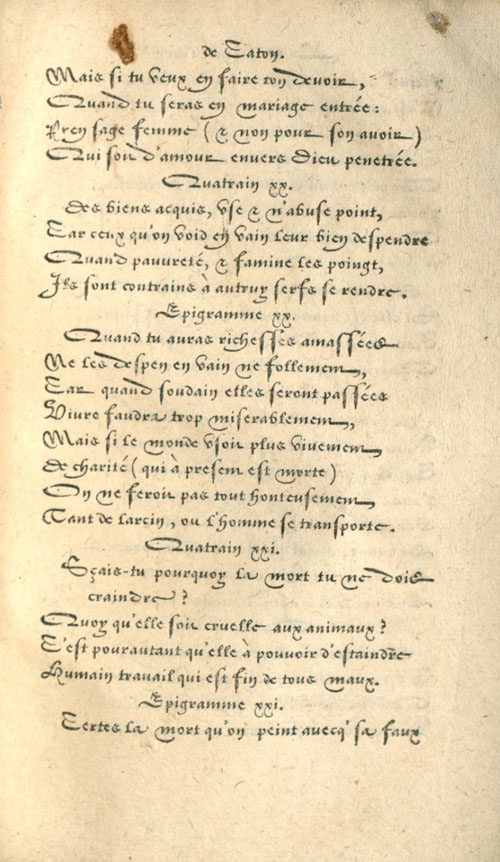 de Caton.
Mais si tu veux en faire ton devoir,
Quand tu seras en mariage entrée:
Pren sage femme (& non pour son avoir)
Qui soit d'amour envers Dieu penetrée.
Quatrain xx.
Des biens acquis, vse & n'abuse point,
Car ceux qu'on void en vain leur bien despendre
Quand pauureté, & famine les poingt,
Ils sont contrains à autruy serfs se rendre.
Epigramme xx.
Quand tu auras richesses amassées
Ne les despen en vain ne follement,
Car quand soudain elles seront passées
Vivre faudra trop miserablement,
Mais si le monde vsoit plus vivement
De charité (qui à present est morte)
On ne feroit pas tout honteusement,
Tant de larcin, ou l'homme se transporte.
Quatrain xxi.
Sçais-tu pourquoy la mort tu ne dois
craindre?
Quoy qu'elle soit cruelle aux animaux?
C'est pourautant qu'elle à pouvoir d'estaindre
Humain travail qui est fin de tous maux.
Epigramme xxi.
Certes la mort qu'on peint avecq' sa faux